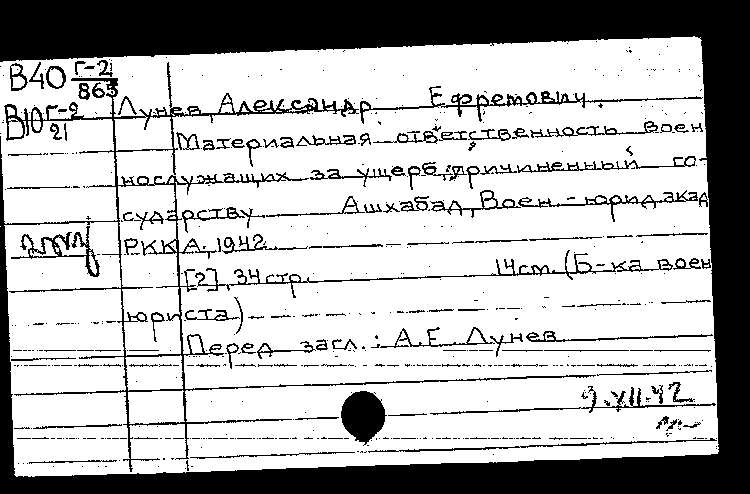 В40 Г-2/863
В10 Г-2/21
Лунев, Александр Ефремович.
Материальная ответственность воен
нослужащих за ущерб, причиненный го-
сударству Ашхабад, Воен.-юрид. акад
РККА, 1942
[2], 34 стр. 14 см. (Б-ка воен
юриста)
Перед загл.: А.Е. Лунев
9.XII.42